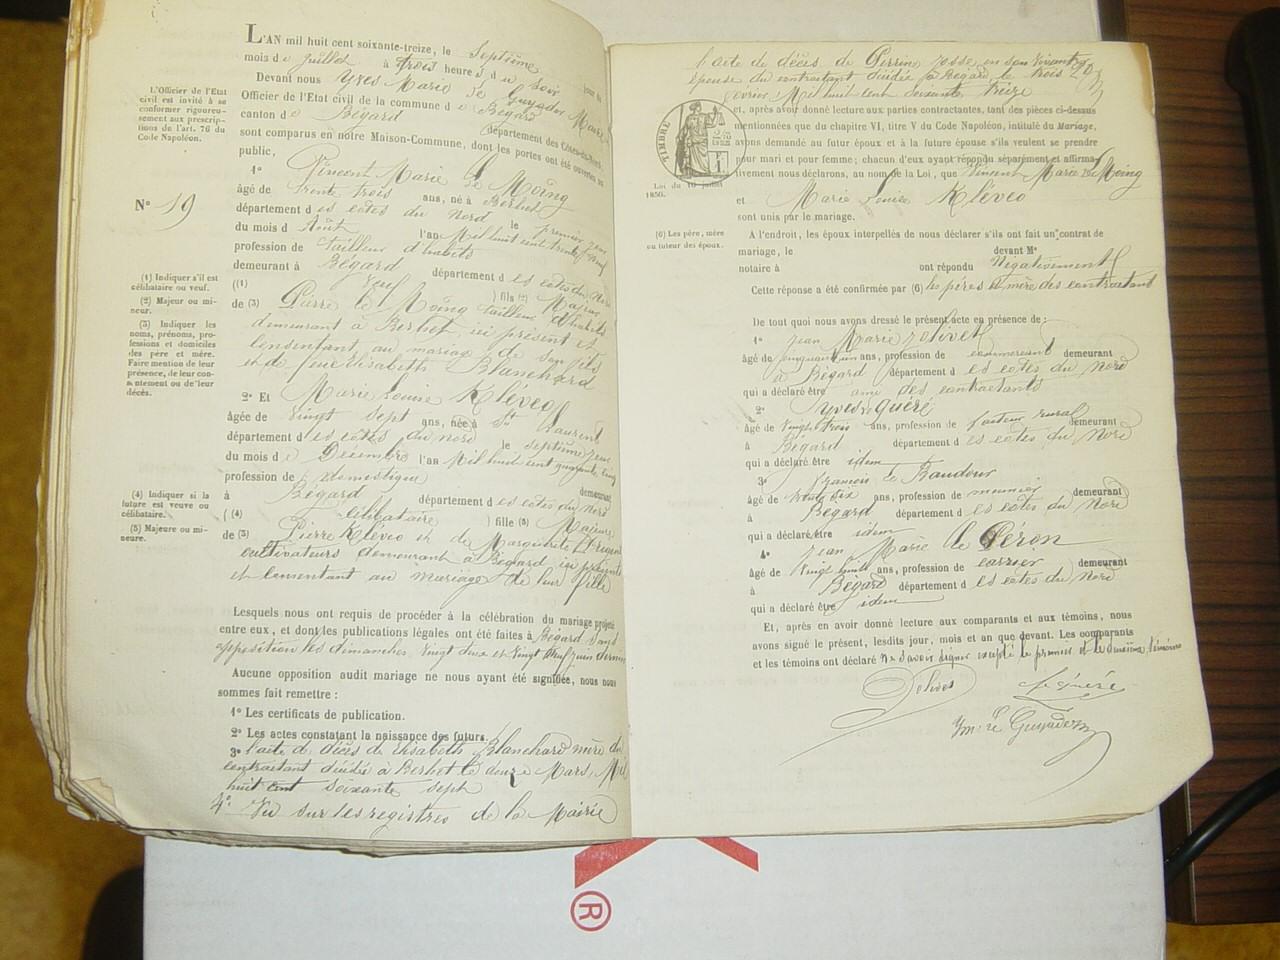 L'AN mil huit cent soixante-treize, le Septième
mois de juillet à trois heures du soir
Devant nous Yves Marie Le Guyader Maire
Officier de l'Etat civil de la commune de Bégard
canton de Bégard département des Côtes-du-Nord
sont comparus en notre Maison-Commune, dont les portes ont été ouvertes au
public,
1° Vincent Marie Le Moing
âgé de trente trois ans, né à Berhet
département des côtes du Nord le premier jour
du mois d Août l'an Mil huit cent trente neuf
profession de tailleur d'habits
demeurant à Bégard département des côtes du Nord
((1) veuf ) fils (2) Majeur
de (3) Pierre le Moing tailleur d'habits
demeurant à Berhet ici présent et
consentant au mariage de son fils
et de feue Elisabeth Blanchard
2° Et Marie Louise Kléveo
âgée de vingt sept ans, née à St Laurent
département des côtes du nord le septième jour
du mois de Décembre l'an Mil huit cent quarante cinq
profession de domestique demeurant
à Bégard département des côtes du Nord
( (4) célibataire ) fille (5) Majeure
de (3) Pierre Kléveo et de Marguerite
cultivateurs demeurant à Bégard ici présents
et consentant au mariage de leur fille
Lesquels nous ont requis de procéder à la célébration du mariage projeté
entre eux, et dont les publications légales ont été faites à Bégard sans
opposition les dimanches vingt deux et vingt neuf juin dernier
Aucune opposition audit mariage ne nous ayant été signifiée, nous nous
sommes fait remettre :
1° Les certificats de publication.
2° Les actes constatant la naissance des futurs.
3° l'acte de décès de Elisabeth Blanchard mère du
contractant décédée à Berhet le douze Mars, Mil
huit cent soixante sept
4° Vu sur les registres de la Mairie
L'Officier de l'Etat
civil est invité à se
conformer rigoureu-
sement aux prescrip-
tions de l'art. 76 du
Code Napoléon.
N° 19
(1) Indiquer s'il est
célibataire ou veuf.
(2) Majeur ou mi-
neur.
(3) Indiquer les
noms, prénoms, pro-
fessions et domiciles
des père et mère.
Faire mention de leur
présence, de leur con-
sentement ou de leur
décès.
(4) Indiquer si la
future est veuve ou
célibataire.
(5) Majeure ou mi-
neure.
l'acte de décès de Perrine Josse en son vivant
épouse du contractant décédée à Bégard le trois
février Mil huit cent soixante treize
et, après avoir donné lecture aux parties contractantes, tant des pièces ci-dessus
mentionnées que du chapitre VI, titre V du Code Napoléon, intitulé du Mariage,
avons demandé au futur époux et à la future épouse s'ils veulent se prendre
pour mari et pour femme ; chacun d'eux ayant répondu séparément et affirma-
tivement nous déclarons, au nom de la Loi, que Vincent Marie Le Moing
et Marie Louise Kléveo
sont unis par le mariage.
A l'endroit, les époux interpellés de nous déclarer s'ils ont fait un contrat de
mariage, le devant Me
notaire à ont répondu Négativement
Cette réponse a été confirmée par (6) les pères et mère des contractant
De tout quoi nous avons dressé le présent acte en présence de :
1° Jean Marie Jolivet
âgé de cinquante un ans, profession de commerçant demeurant
à Bégard département des côtes du Nord
qui a déclaré être ami des contractants
2° Yves le Quéré
âgé de vingt trois ans, profession de facteur rural demeurant
à Bégard département des côtes du Nord
qui a déclaré être idem
3° François le Baudour
âgé de ans, profession de meunier demeurant
à Bégard département des côtes du Nord
qui a déclaré être idem
4° Jean Marie le Péron
âgé de vingt huit ans, profession de carrier demeurant
à Bégard département des côtes du Nord
qui a déclaré être idem
Et, après en avoir donné lecture aux comparants et aux témoins, nous
avons signé le présent, lesdits jour, mois et an que devant. Les comparants
et les témoins ont déclaré ne savoir signer excepté le premier et le deuxième témoins
Jolivet Le Quéré
Ym. Le Guyader
TIMBRE
Loi du 10 juillet
1856.
(6) Les père, mère
ou tuteur des époux.
®